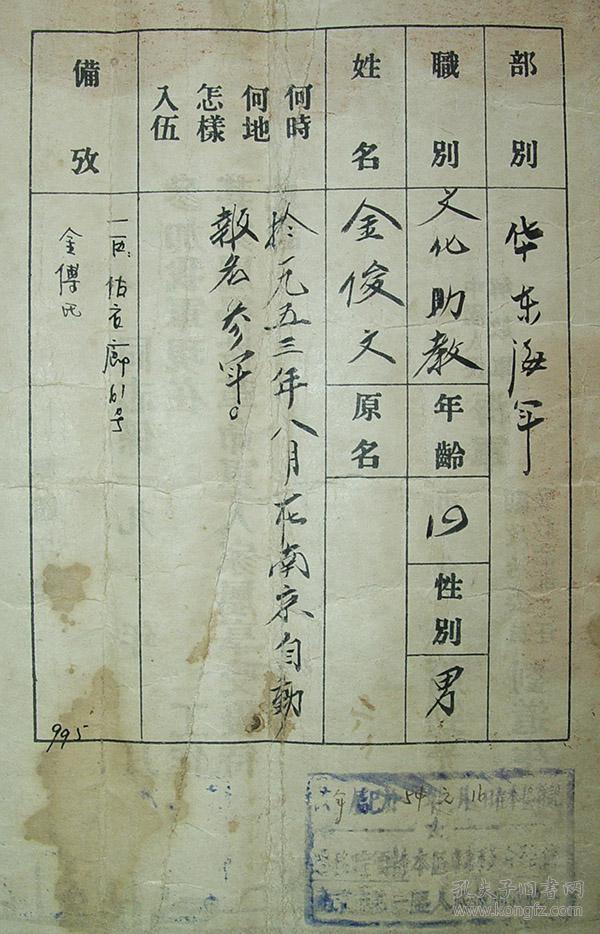 部別
华东海军
職別
文化助教
年齡
19
性別
男
姓名
金俊文
原名
何時
何地
怎樣
入伍
於一九五三年八月在南京自動
報名參軍。
備攷
一區、估衣廊61号
金傳
995
54
月16
孔夫子旧书网
www.kongfz.com